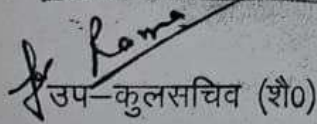 उप–कुलसचिव (शै0)